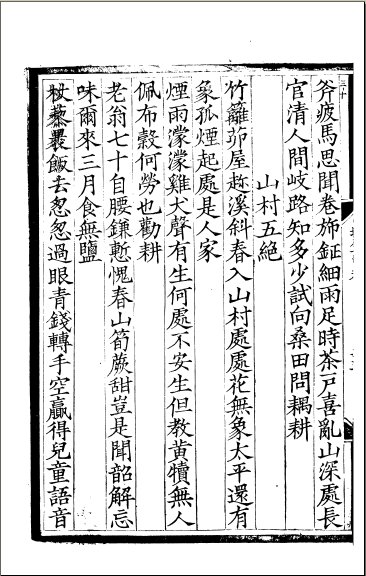 斧疲馬思聞卷斾鉦細雨足時茶戸喜亂山深處長
官清人間岐路知多少試向桑田問耦耕
山村五絶
竹籬茆屋趂溪斜春入山村處處花無象太平還有
象孤煙起處是人家
煙雨濛濛雞犬聲有生何處不安生但教黄犢無人
佩布穀何勞也勸耕
老翁七十自腰鎌慙愧春山筍蕨甜豈是聞韶解忘
味爾來三月食無鹽
杖藜褁飯去怱怱過眼青錢轉手空贏得兒童語音